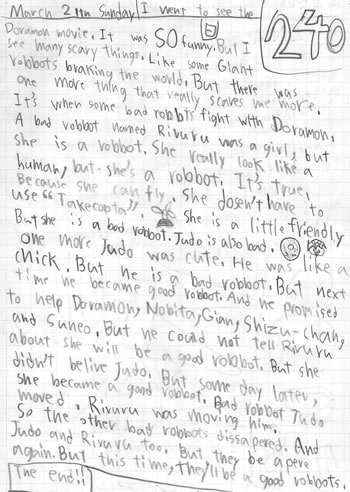 March 21th Sunday I went to see the
240
Doramon movie. It was SO funny. But I
see many scary things. Like some Giant
robbots braking the world. But there was
one more thing that really scaves me more.
It's when some bad robbts fight with Doramon.
A bad robbot named Rivuru was a girl, but
She is a robbot. She really look like a
human, but she's a robbot. It's true.
Because she can fly. She dosen't have to
use "Takecopta" She is a little friendly
But she is a bad robbot. Judo is also bad.
one more Judo was cute. He was like a
chick. But he is a bad robbot. But next
time he became good robbot. And he promised
to help Doramon, Nobita, Gian, Shizu-chan,
and Suneo. But he could not tell Rivuru
about she will be a good robbot. But she
didn't belive Judo. But some day later,
She became a good robbot. Bad robbot Judo
moved. Rivuru was moving him.
So the other bad robbots dissapered. And
Judo and Rivuru too. But they be apere
again. But this time, they'll be a good robbots.
The end!!